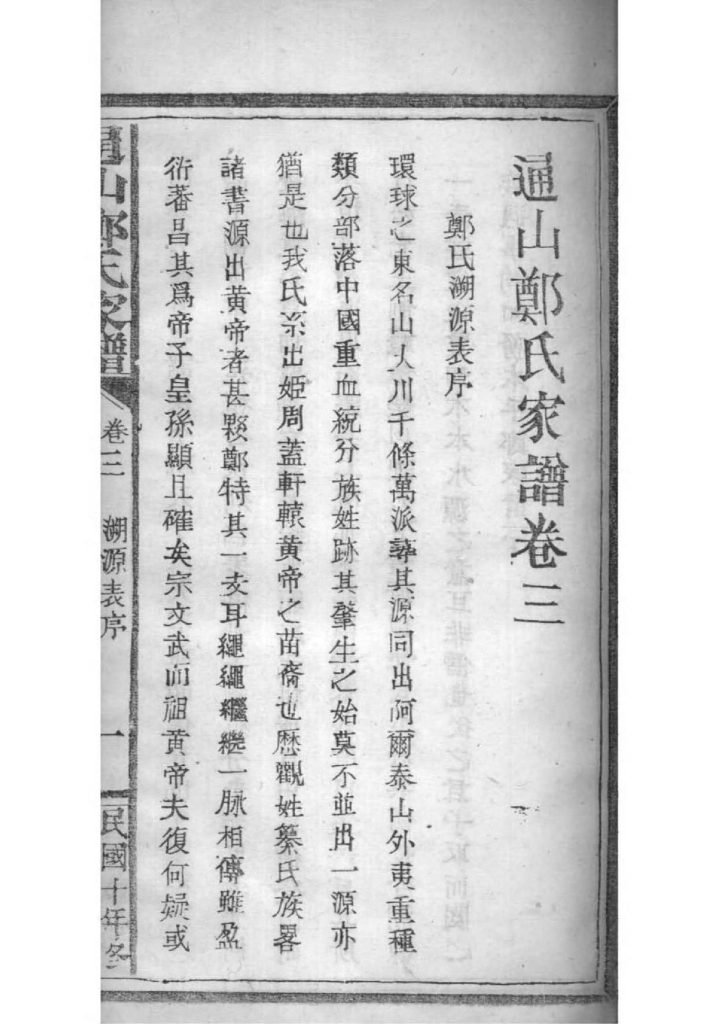 通山鄭氏家譜卷三
鄭氏溯源表序
環球之東名山大川千條萬派譯其源同出阿爾泰山外夷重種
類分部落中國重血統分族姓跡其肇生之始莫不並出一源亦
猶是也我氏系出姬周蓋軒轅黃帝之苗裔也歷觀姓纂氏族畧
諸書源出黃帝者甚夥鄭特其一支耳繩繩繼繼一脉相傳雖盈
衍蕃昌其爲帝子皇孫顯且確矣宗文武而祖黃帝夫復何疑或
通山鄭氏家譜
卷三
溯源表序
一
民國十年修